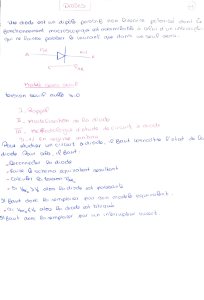 DIODES
Une diode est un dipôle passif non linéaire polarisé dont le
fonctionnement macroscopique est assimilable à celui d'un interrupteur
qui ne laisse passer le courant que dans un seul sens.
A
Modèle sans seuil
tension seuil nulle
I. Rappel
II. modélisation de la diode
III. Méthodologie d'étude de circuit à diode
Pour étudier un circuit à diode, il faut connaître l'état de la
diode. Pour cela, il faut:
- Déconnecter la diode
- Faire le schéma équivalent résultant
- Calculer la tension
- Si alors la diode est passante
Il faut donc la remplacer par son modèle équivalent.
- Si alors la diode est bloquée
Il faut donc la remplacer par un interrupteur ouvert